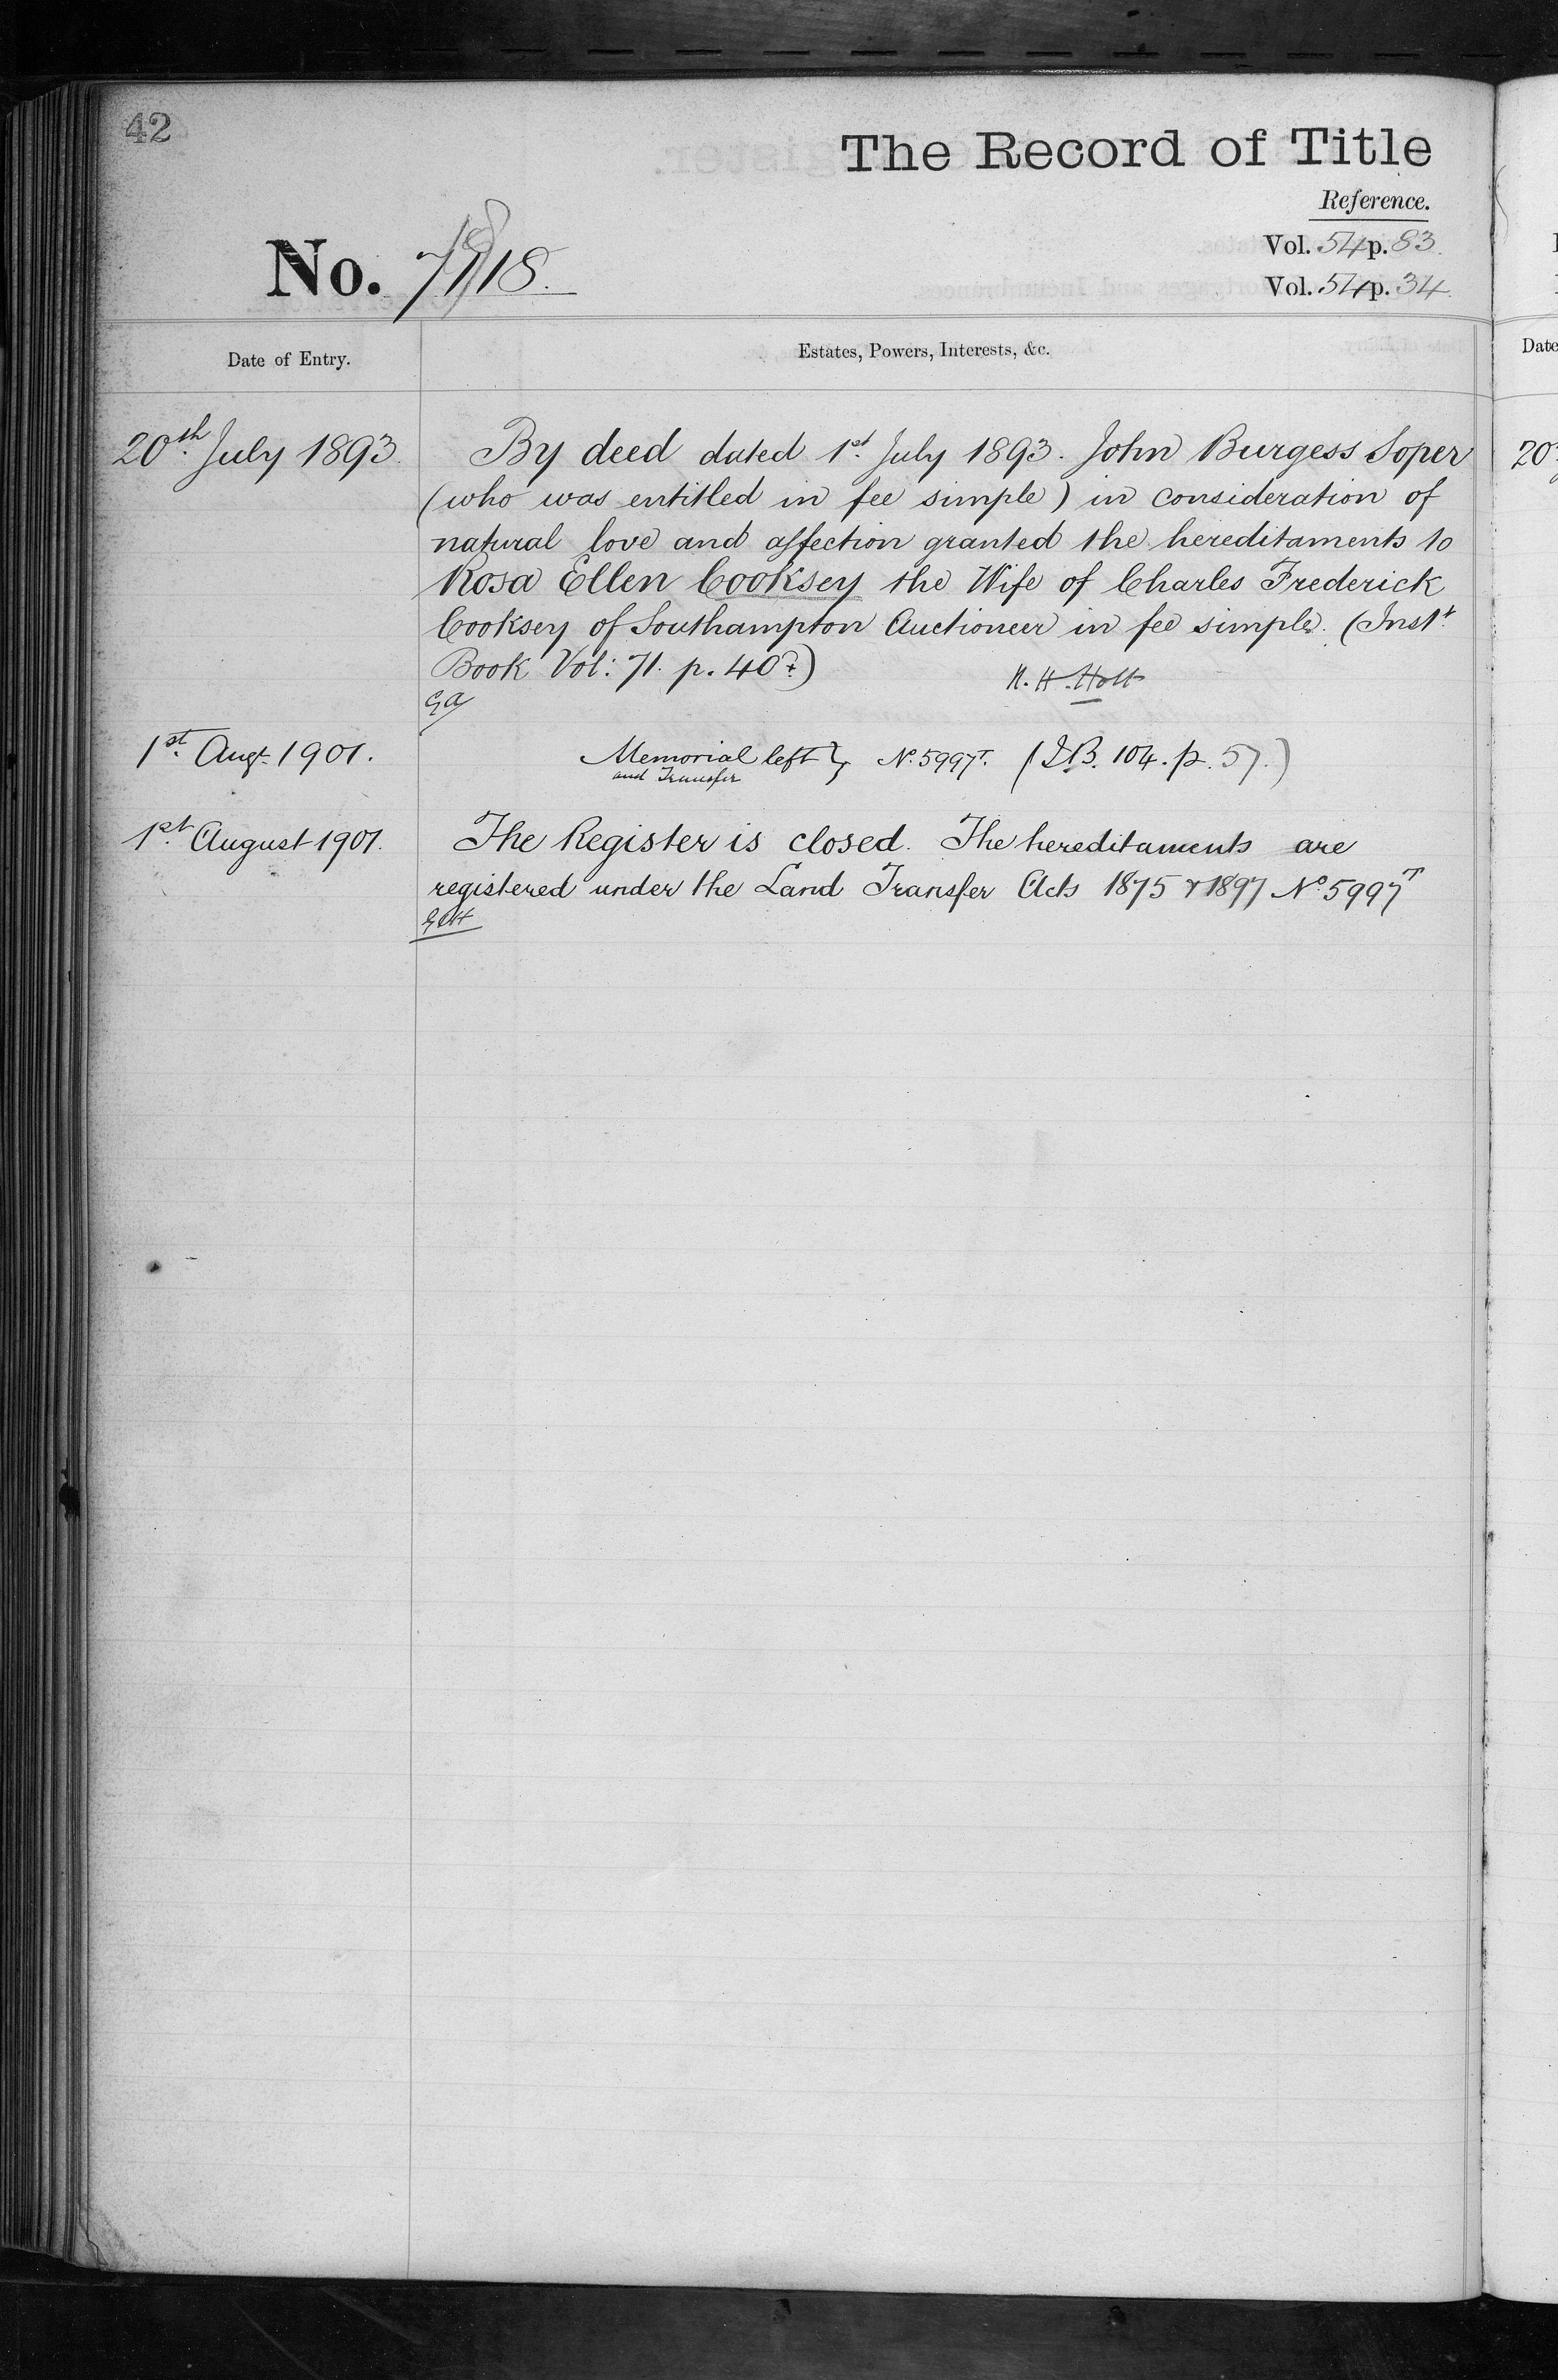 42
The Record of Title
Reference.
No. 7118.
Vol. 54 p. 83.
Vol. 54 p. 34.
Date of Entry.
Estates, Powers, Interests, &c.
20th. July 1893.
By deed dated 1st. July 1893. John Burgess Soper
(who was entitled in fee simple) in consideration of
natural love and affection granted the hereditaments to
Rosa Ellen Cooksey the Wife of Charles Frederick
Cooksey of Southampton Auctioneer in fee simple. (Inst.
Book Vol: 71. p. 40)
N. H. Holt
1st. Augt. 1901.
Memorial left } No. 5997T. (I.B. 104. p. 57.)
and Transfer
1st. August 1901.
The Register is closed. The hereditaments are
registered under the Land Transfer Acts 1875 & 1897 No. 5997T
Date
20